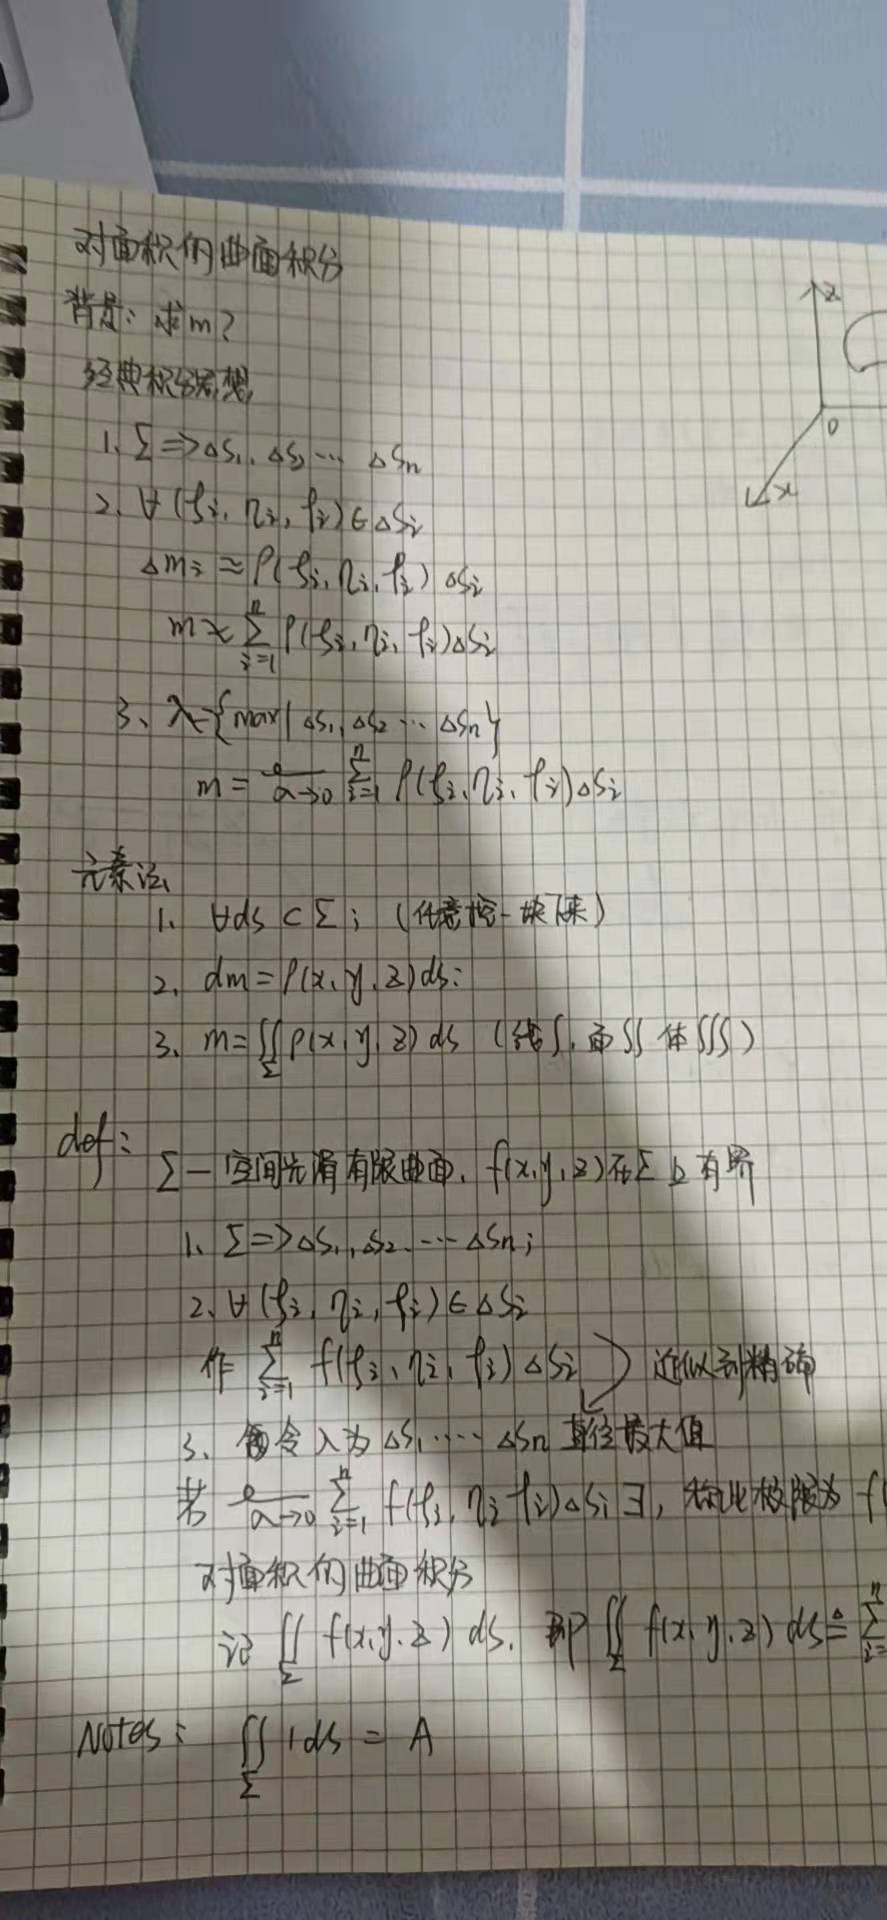 对面积的曲面积分
背景：求m？
经典积分思想
1、Σ => ΔS₁, ΔS₂ … ΔSn
2、∀(ξi, ηi, ζi) ∈ ΔSi
Δmi ≈ ρ(ξi, ηi, ζi) ΔSi
m ≈ Σ_{i=1}^{n} ρ(ξi, ηi, ζi) ΔSi
3、λ={max| ΔS₁, ΔS₂ … ΔSn}
m = _{→0} Σ_{i=1}^{n} ρ(ξi, ηi, ζi) ΔSi
z
0
x
元素法
1、∀ds ⊂ Σ；（任意挖一块下来）
2、dm = ρ(x, y, z) ds；
3、m = ∬_Σ ρ(x, y, z) ds （线∫, 面∬ 体∭）
def：
Σ — 空间光滑有限曲面, f(x, y, z)在Σ上有界
1、Σ => ΔS₁, ΔS₂, … ΔSn；
2、∀(ξi, ηi, ζi) ∈ ΔSi
作 Σ_{i=1}^{n} f(ξi, ηi, ζi) ΔSi 近似到精确
3、令λ为ΔS₁ … ΔSn 直径最大值
若 _{→0} Σ_{i=1}^{n} f(ξi, ηi, ζi) ΔSi ∃, 称此极限为 f(
对面积的曲面积分
记 ∬_Σ f(x, y, z) ds, 即 ∬_Σ f(x, y, z) ds ≜ Σ_{i=}^{n}
Notes： ∬_Σ 1 ds = A